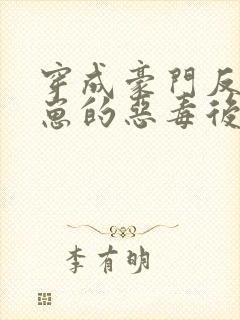 穿成豪門反
崽的惡毒後
李有明